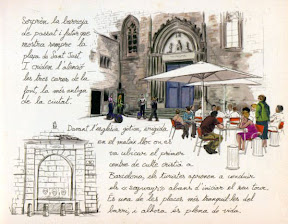 Sorprèn la barreja
de passat i futur que
mostra sempre la
plaça de Sant Just.
I criden l'atenció
les tres cares de la
font, la més antiga
de la ciutat.
Davant l'església gòtica, erigida
en el mateix lloc on
es va ubicar el primer
centre de culte cristià a
Barcelona, els turistes aprenen a conduir
els abans d'iniciar el seu tour.
És una de les places més tranquil·les del
barri, i alhora és plena de vida.